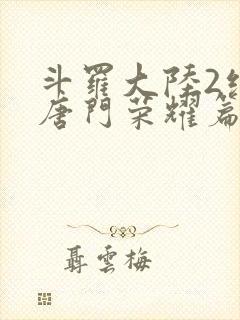 斗羅大陸2
唐門荣耀篇
聶雲梅